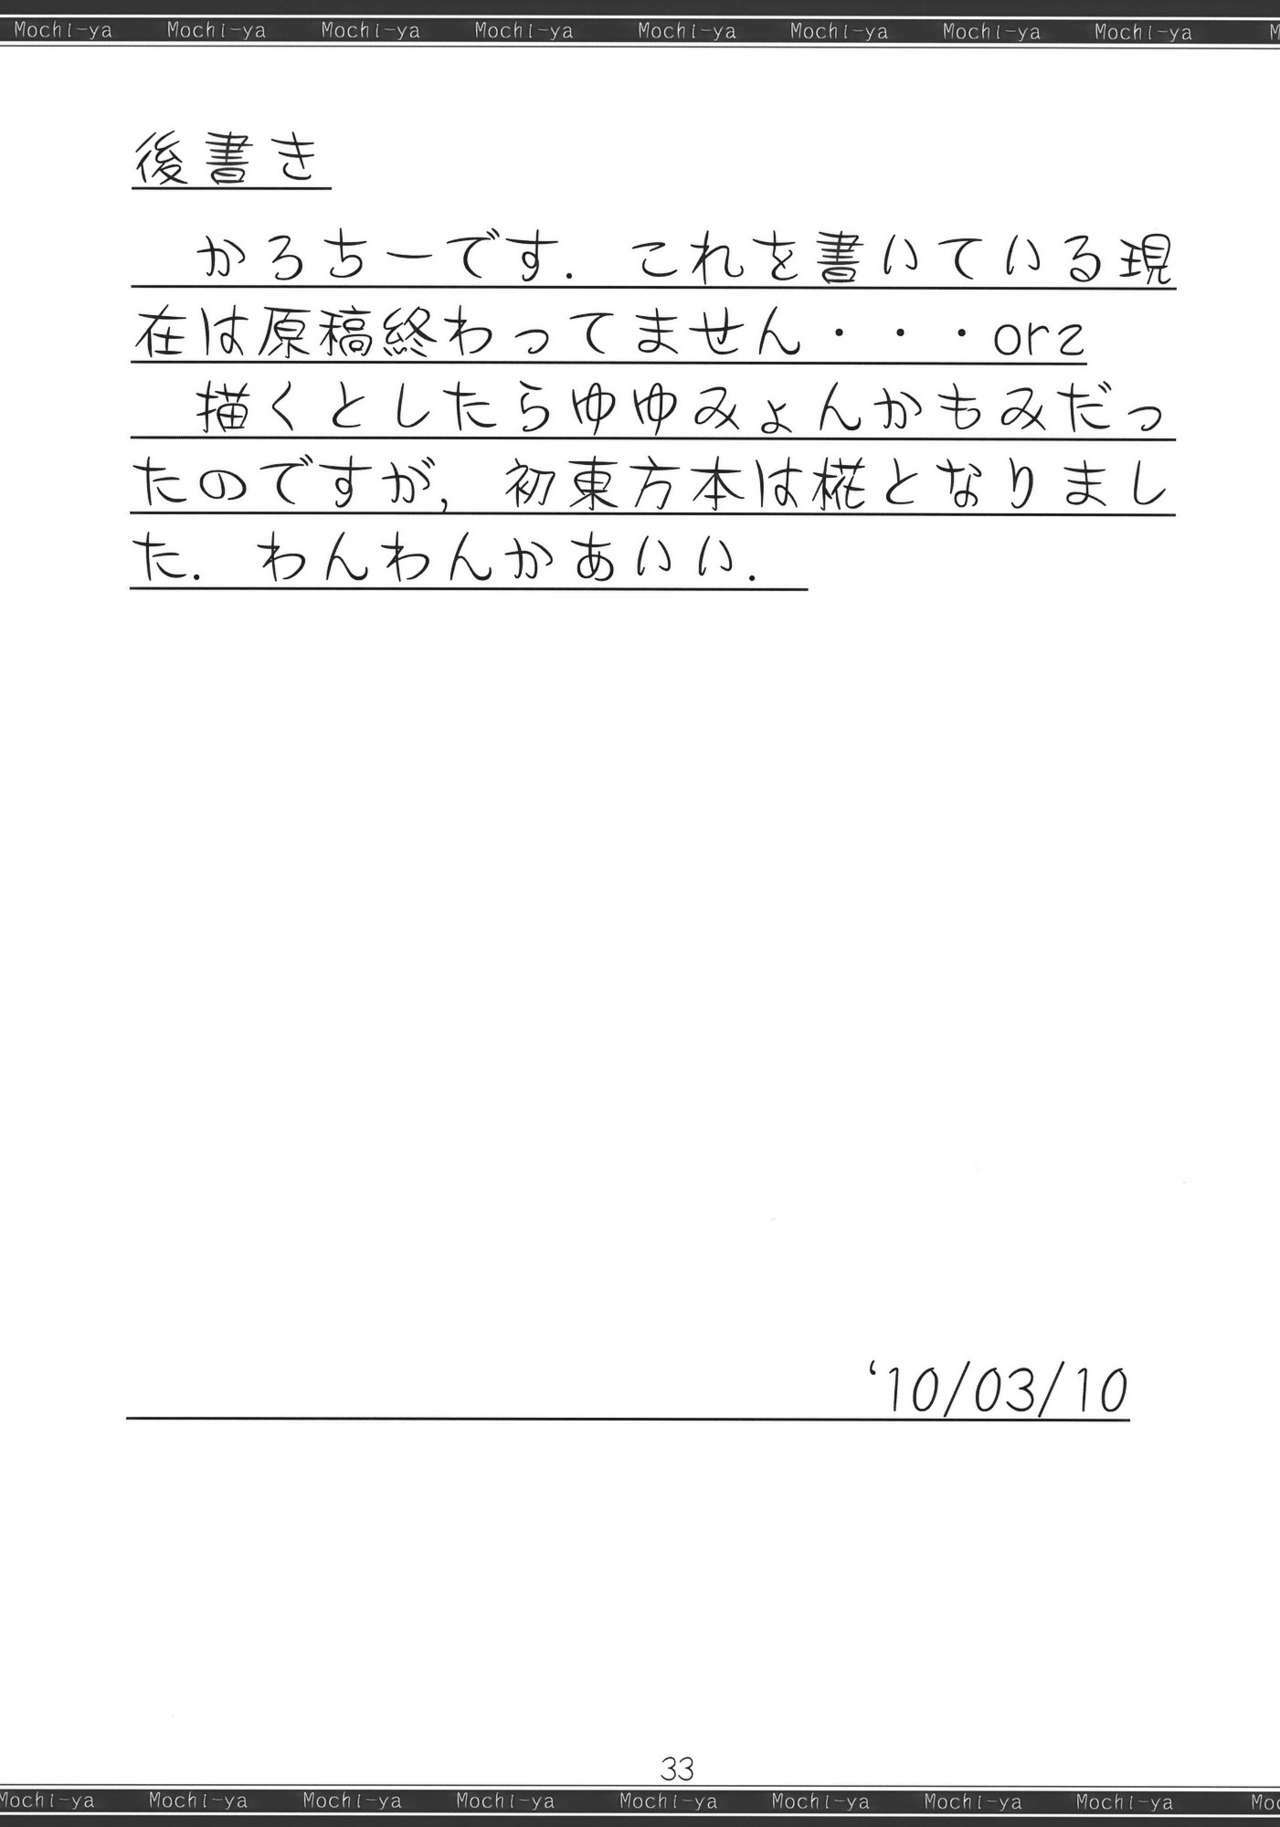 Mochi-ya Mochi-ya Mochi-ya Mochi-ya Mochi-ya Mochi-ya Mochi-ya Mochi-ya
後書き
かろちーです．これを書いている現
在は原稿終わってません・・・orz
描くとしたらゆゆみょんかもみだっ
たのですが，初東方本は椛となりまし
た．わんわんかあいい．
‘10/03/10
33
Mochi-ya Mochi-ya Mochi-ya Mochi-ya Mochi-ya Mochi-ya Mochi-ya Mochi-ya